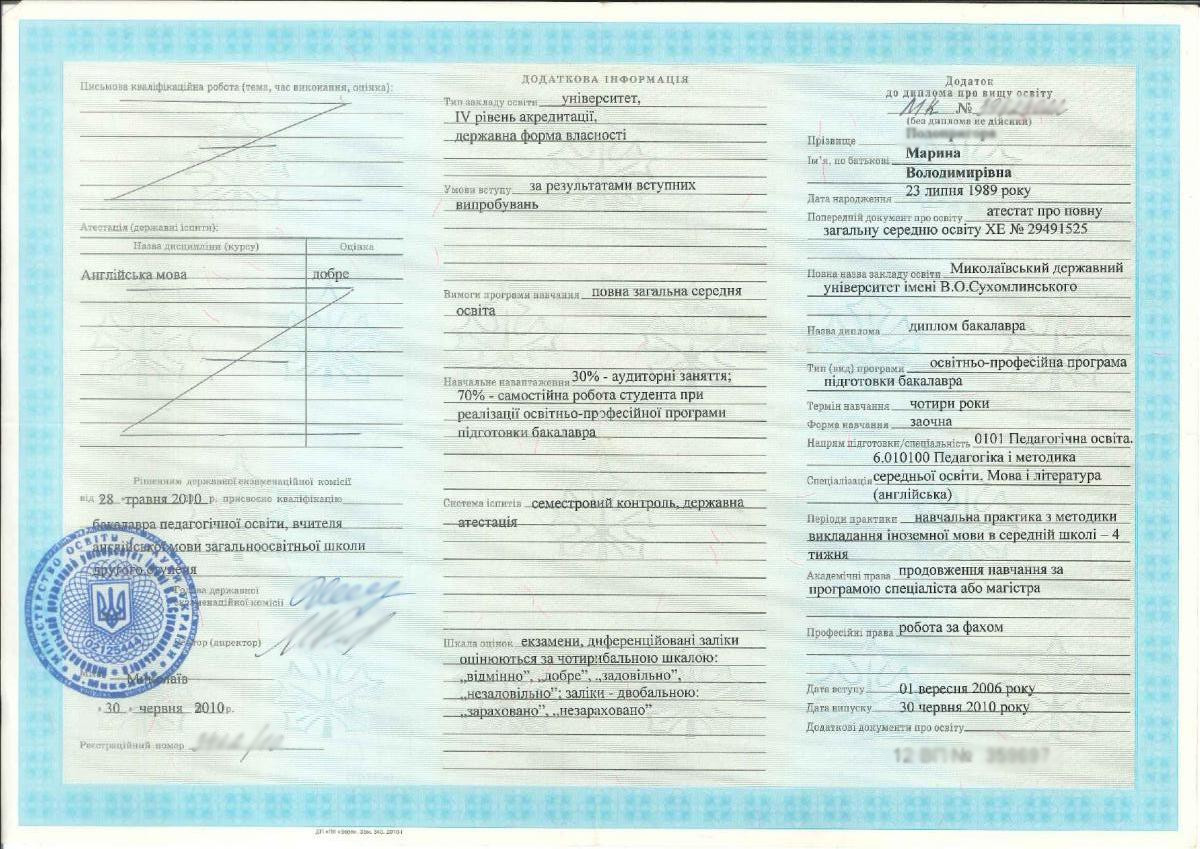 Письмова кваліфікаційна робота (тема, час виконання, оцінка):
Атестація (державні іспити):
Назва дисципліни (курсу) Оцінка
Англійська мова добре
Рішенням державної екзаменаційної комісії
від 28 травня 2010 р. присвоєно кваліфікацію
бакалавра педагогічної освіти, вчителя
англійської мови загальноосвітньої школи
другого ступеня
Голова державної
екзаменаційної комісії
(директор)
Миколаїв
«30» червня 2010 р.
Реєстраційний номер
ДОДАТКОВА ІНФОРМАЦІЯ
Тип закладу освіти університет,
IV рівень акредитації,
державна форма власності
Умови вступу за результатами вступних
випробувань
Вимоги програми навчання повна загальна середня
освіта
Навчальне навантаження 30% - аудиторні заняття;
70% - самостійна робота студента при
реалізації освітньо-професійної програми
підготовки бакалавра
Система іспитів семестровий контроль, державна
атестація
Шкала оцінок екзамени, диференційовані заліки
оцінюються за чотирибальною шкалою:
„відмінно”, „добре”, „задовільно”,
„незаловільно”; заліки - двобальною:
„зараховано”, „незараховано”
Додаток
до диплома про вищу освіту
МК №
(без диплома не дійсний)
Прізвище
Ім’я, по батькові Марина
Володимирівна
Дата народження 23 липня 1989 року
Попередній документ про освіту атестат про повну
загальну середню освіту ХЕ № 29491525
Повна назва закладу освіти Миколаївський державний
університет імені В.О.Сухомлинського
Назва диплома диплом бакалавра
Тип (вид) програми освітньо-професійна програма
підготовки бакалавра
Термін навчання чотири роки
Форма навчання заочна
Напрям підготовки/спеціальність 0101 Педагогічна освіта.
6.010100 Педагогіка і методика
Спеціалізація середньої освіти. Мова і література
(англійська)
Періоди практики навчальна практика з методики
викладання іноземної мови в середній школі – 4
тижня
Академічні права продовження навчання за
програмою спеціаліста або магістра
Професійні права робота за фахом
Дата вступу 01 вересня 2006 року
Дата випуску 30 червня 2010 року
Додаткові документи про освіту
12 ВП №